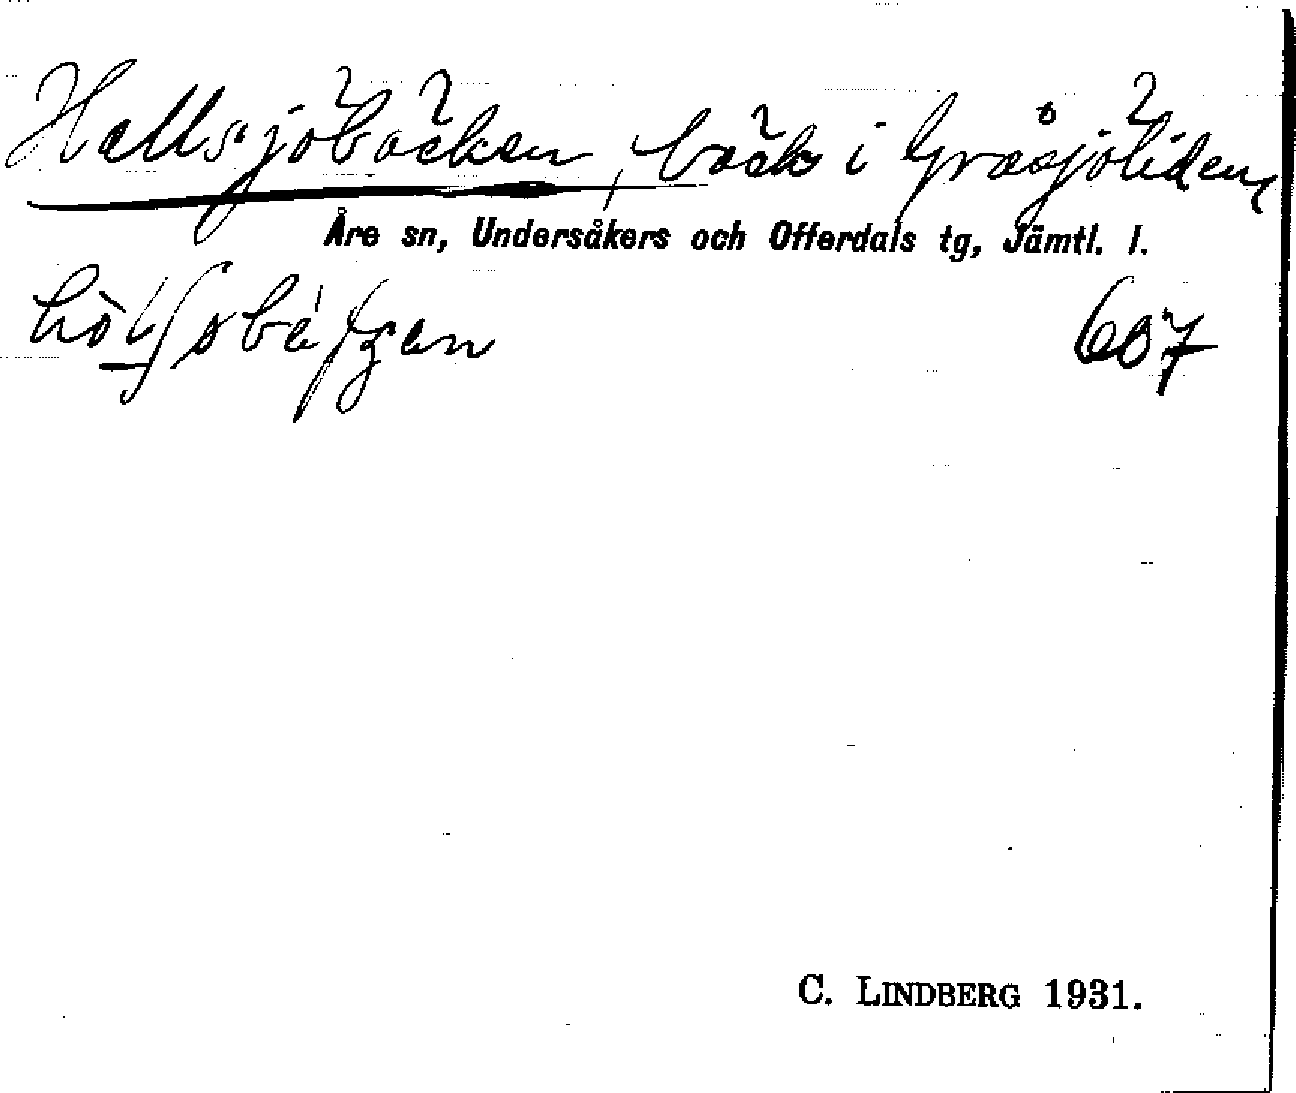 Hallsjöbäcken, bäck i Gråsjöliden,
Åre sn, Undersåkers och Offerdals tg, Jämtl. l.
607
C. LINDBERG 1931.